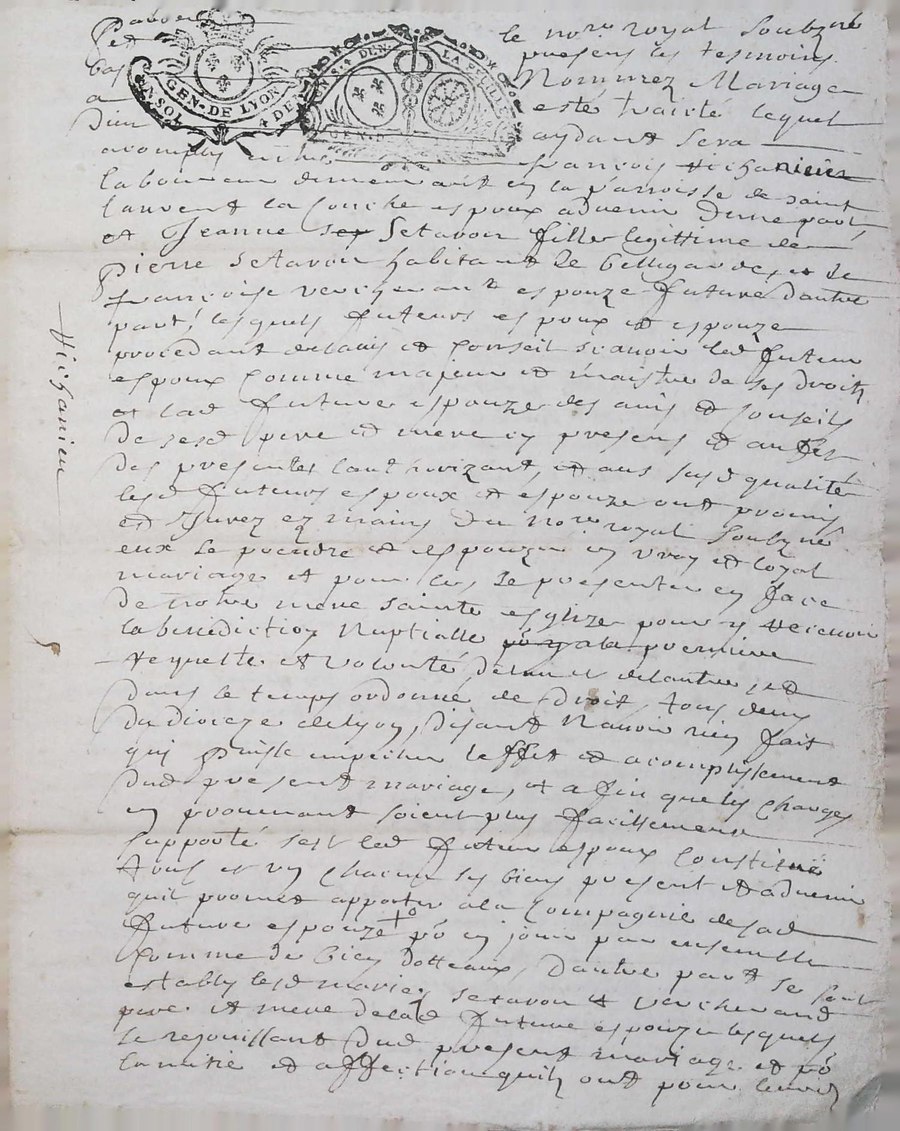 le nore royal soubzné
Pet presens les tesmoins
bas Nommez Mariage
a esté traitté lequel
dieu aydant sera
acomply entre françois Richanieu
laboureur demeurant en la parroisse de saint
laurent la Conche espoux aduenir d'une part,
et Jeanne Setavoir fille legittime de
Pierre Setavoir habitant de belligarde, et de
françoise espouze future dautre
part, lesquels futeurs espoux et espouze
procedant delauis et Conseil scauoir led futeur
espoux Comme majeur et maistre de ses droitz
et lad future espouze des auis et Conseils
de sesd pere et mere icy presens et
des presentes lauthorizant, et aus susd qualité
lesd futeurs espoux et espouze ont promis
et Jurez ez mains du nore royal soubzné
eux se prendre et espouzer en vray et loyal
mariage et pour ces se presenter en face
de nostre mere sainte esglize pour y Receuoir
la benediction Nuptialle a la premiere
Requette et volonté de lun et delautre, et
dans le temps ordonné de droit, tous deux
du dioceze de lyon, disant Nauoir rien fait
qui Puisse empecher leffet et acomplissement
dud present mariage, et afin que les Charges
en prouenant soient plus facillement
supporté sest led futeur espoux Constitué
tous et un Chacun ses biens present et aduenir
quil promet apporter a la Compagnie de sad
future espouze po en jouir par ensemble
Comme de bien dotteaux, dautre part se sont
estably lesd mariez setavoir et
pere et mere de lad future espouze lesquels
se rejouissant dud present mariage et po
lamitié et affection quilz ont pour
Richanieu
GEN. DE LYON